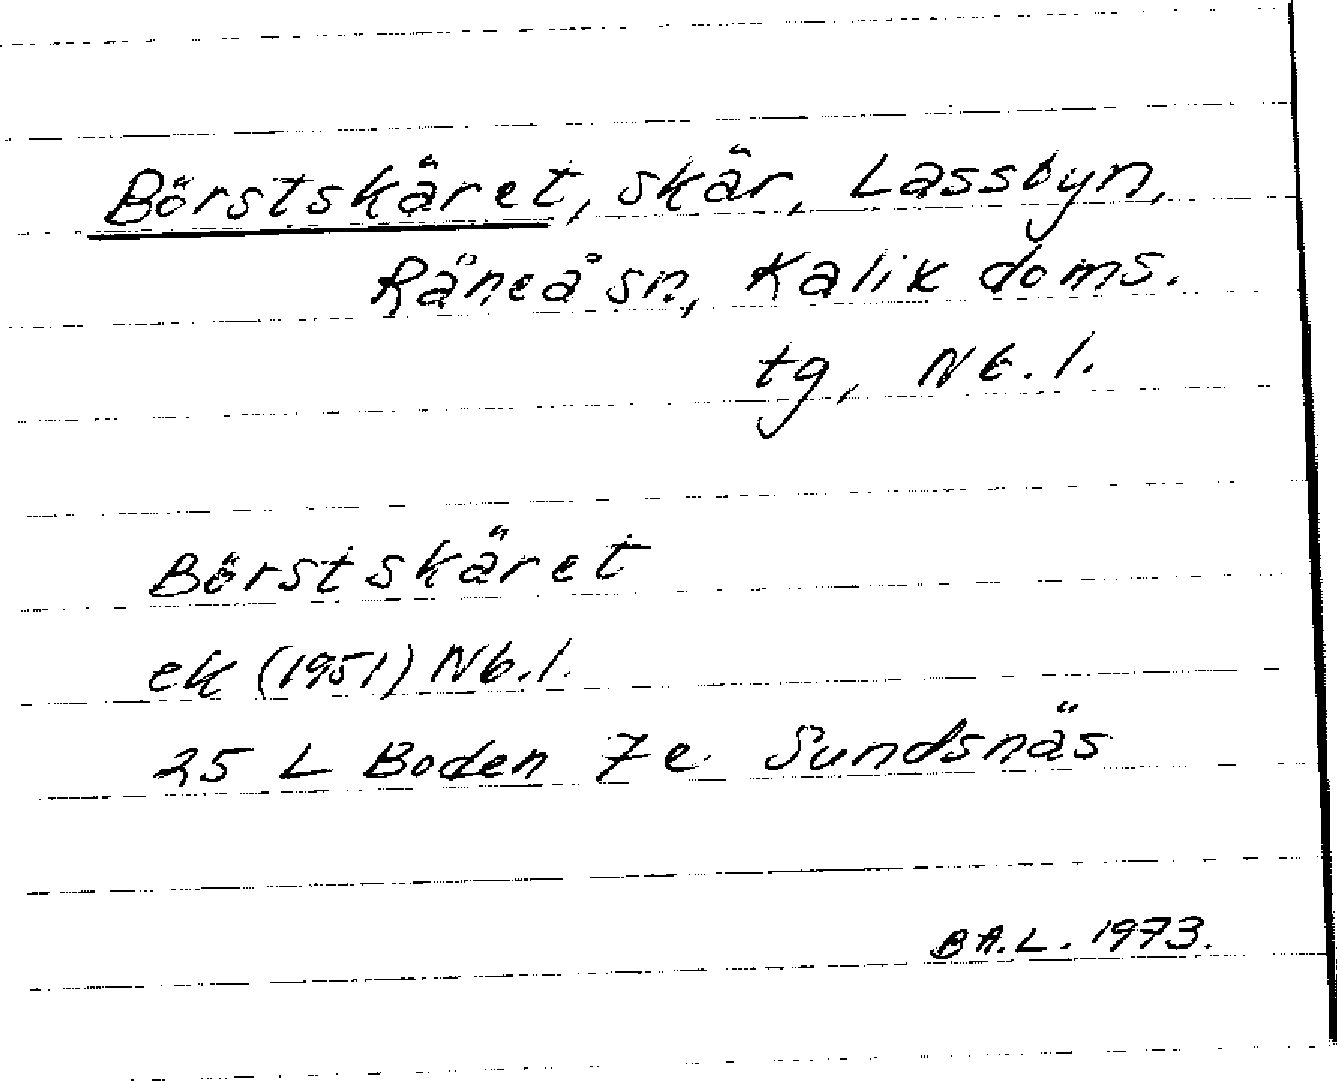 Börstskäret, skär, Lassbyn,
Råneå sn, Kalix doms.
tg, Nb. l.
Börstskäret
ek (1951) Nb. l.
25 L Boden 7e Sundsnäs
B A.L. 1973.